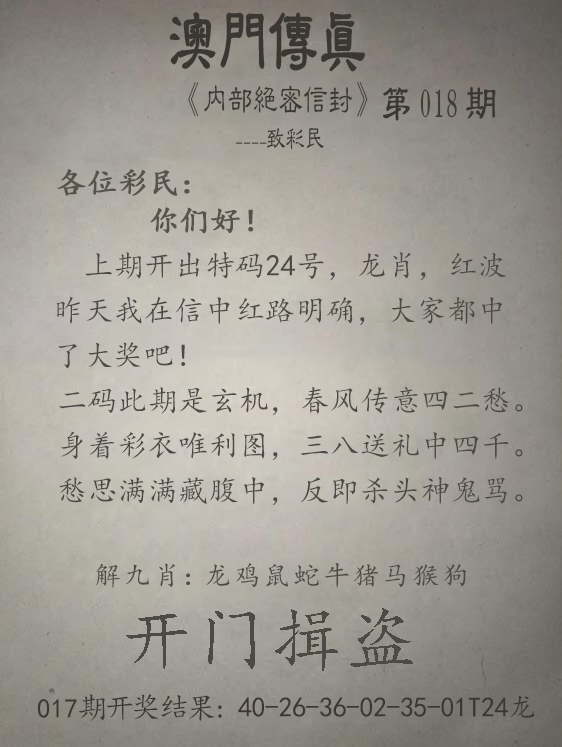 澳門傳眞
《内部絕密信封》第018期
----致彩民
各位彩民：
你们好！
上期开出特码24号，龙肖，红波
昨天我在信中红路明确，大家都中
了大奖吧！
二码此期是玄机，春风传意四二愁。
身着彩衣唯利图，三八送礼中四千。
愁思满满藏腹中，反即杀头神鬼骂。
解九肖：龙鸡鼠蛇牛猪马猴狗
开门揖盗
017期开奖结果：40-26-36-02-35-01T24龙